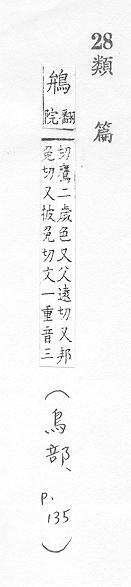 28 類篇
鴘 翻院
切鷹二歲色又父遠切又邦
免切又披免切文一重音三
(鳥部、p. 135)